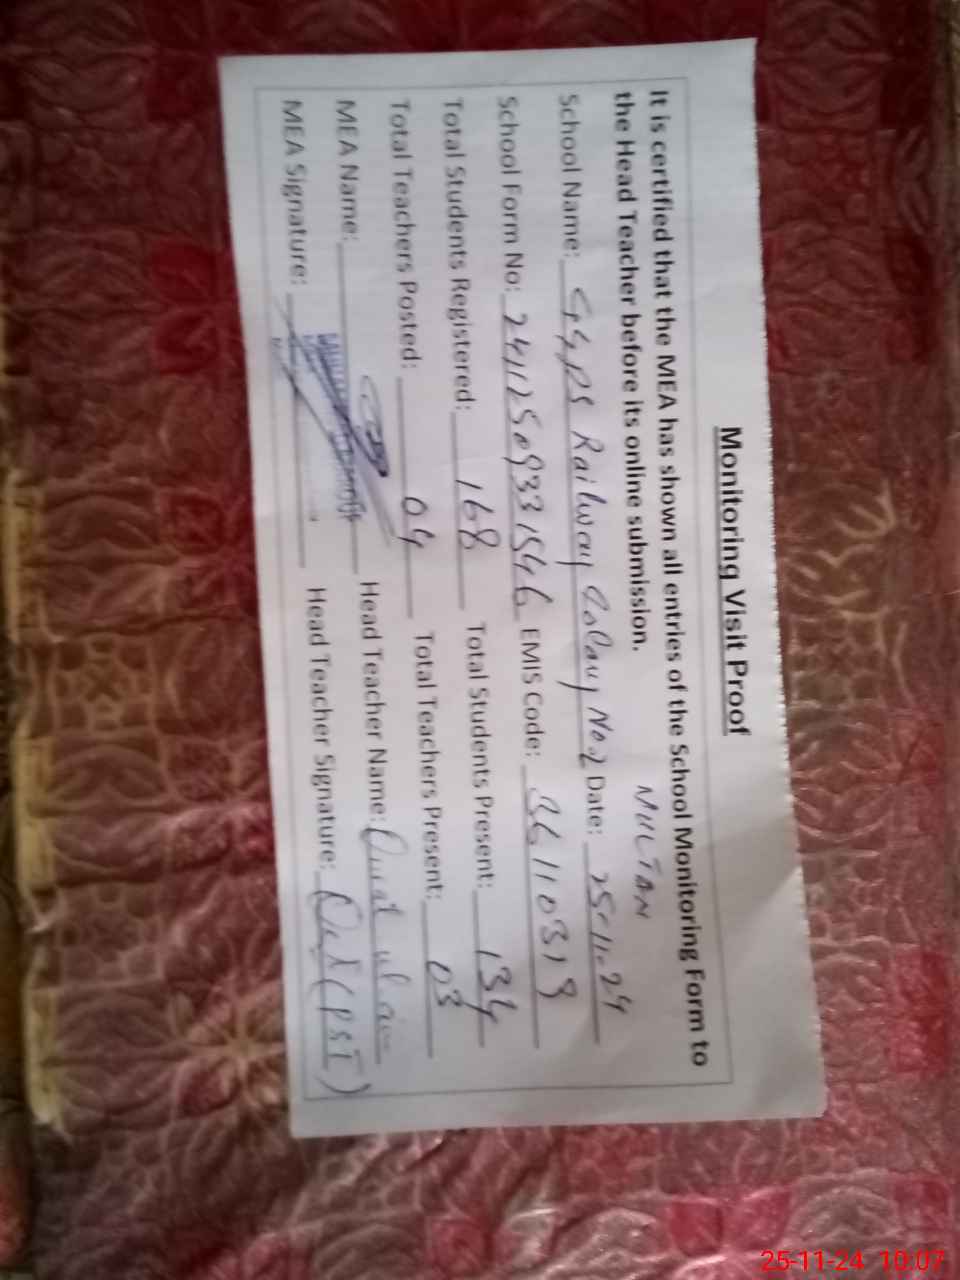 Monitoring Visit Proof
It is certified that the MEA has shown all entries of the School Monitoring Form to
the Head Teacher before its online submission.
MULTAN
School Name: GGPS Railway Colony No2 Date: 25-11-24
School Form No: 24112509331546 EMIS Code: 36110313
Total Students Registered: 168 Total Students Present: 134
Total Teachers Posted: 04 Total Teachers Present: 03
MEA Name: Head Teacher Name: Qurat ul ain
MEA Signature: Head Teacher Signature: (PST)
25-11-24 10:07